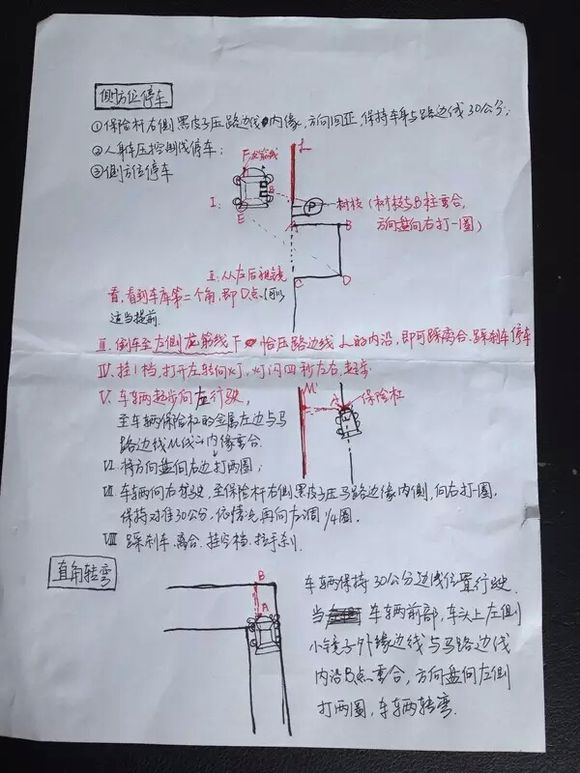 侧方位停车
①保险杆右侧黑皮子压路边线内缘,方向回正,保持车身与路边线30公分;
②人身体压控制线停车;
③侧方位停车
F龙筋线
L
I:
B
E
P
树枝(树枝与B柱重合,
方向盘向右打一圈)
A
B
C
D
II:从左后视镜
看,看到车库第二个角,即D点.(可以
适当提前.
III.倒车至左侧龙筋线F恰压路边线L的内沿,即可踩离合.踩刹车停车
IV.挂1档,打开左转向灯,灯闪四秒左右,起车.
V.车辆起步向左行驶,
至车辆保险杠的金属左边与马
路边线M线的内缘重合.
M
保险杠
VI.将方向盘向右边打两圈;
VII.车辆向右驾驶,至保险杆右侧黑皮子压马路边缘内侧,向右打一圈.
保持对准30公分,依情况再向左调1/4圈.
VIII.踩刹车.离合.挂空档.拉手刹.
直角转弯
B
A
车辆保持30公分边线位置行驶.
当车辆前部,车头上左侧
小镜子外缘边线与马路边线
内沿B点重合,方向盘向左侧
打两圈,车辆转弯.